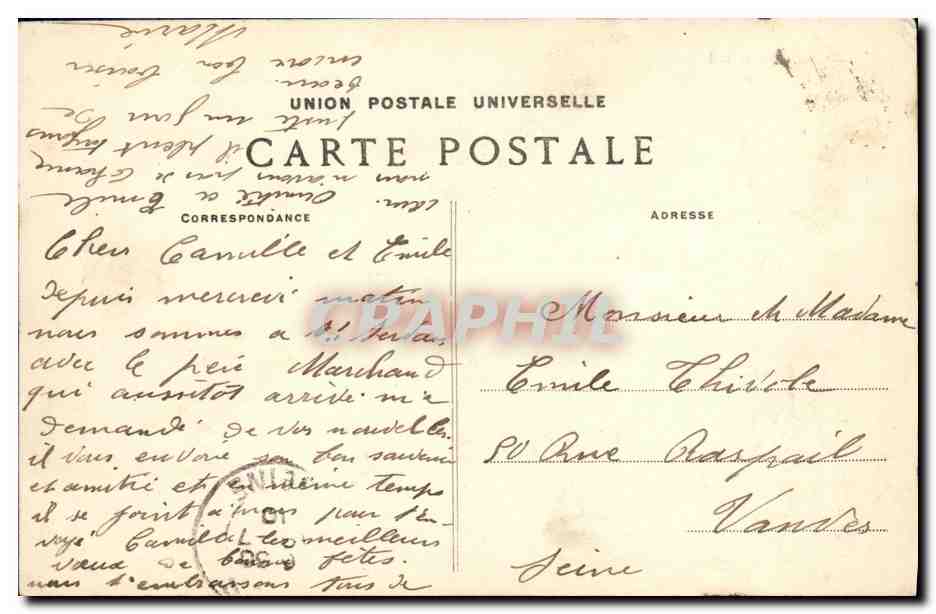 UNION POSTALE UNIVERSELLE
CARTE POSTALE
CORRESPONDANCE
ADRESSE
Chers Camille et Emile
depuis mercredi matin
nous sommes a St
avec le père Marchand
qui aussitôt arrivé m'a
demandé de vos nouvelles.
il vous envoie son bon souvenir
et amitié et en même temps
il se joint a nous pour t'en
voyé Camille les meilleurs
vœux de bonne fêtes.
nous t'embrassons tous de
cœur. Amitié a Emile
nous n'avons pas de chance
il pleut toujours
juste un jour de
beau.
encore bon baiser
Marie
Monsieur et Madame
Emile Thivole
50 Rue Raspail
Vanves
Seine
CRAPHIL